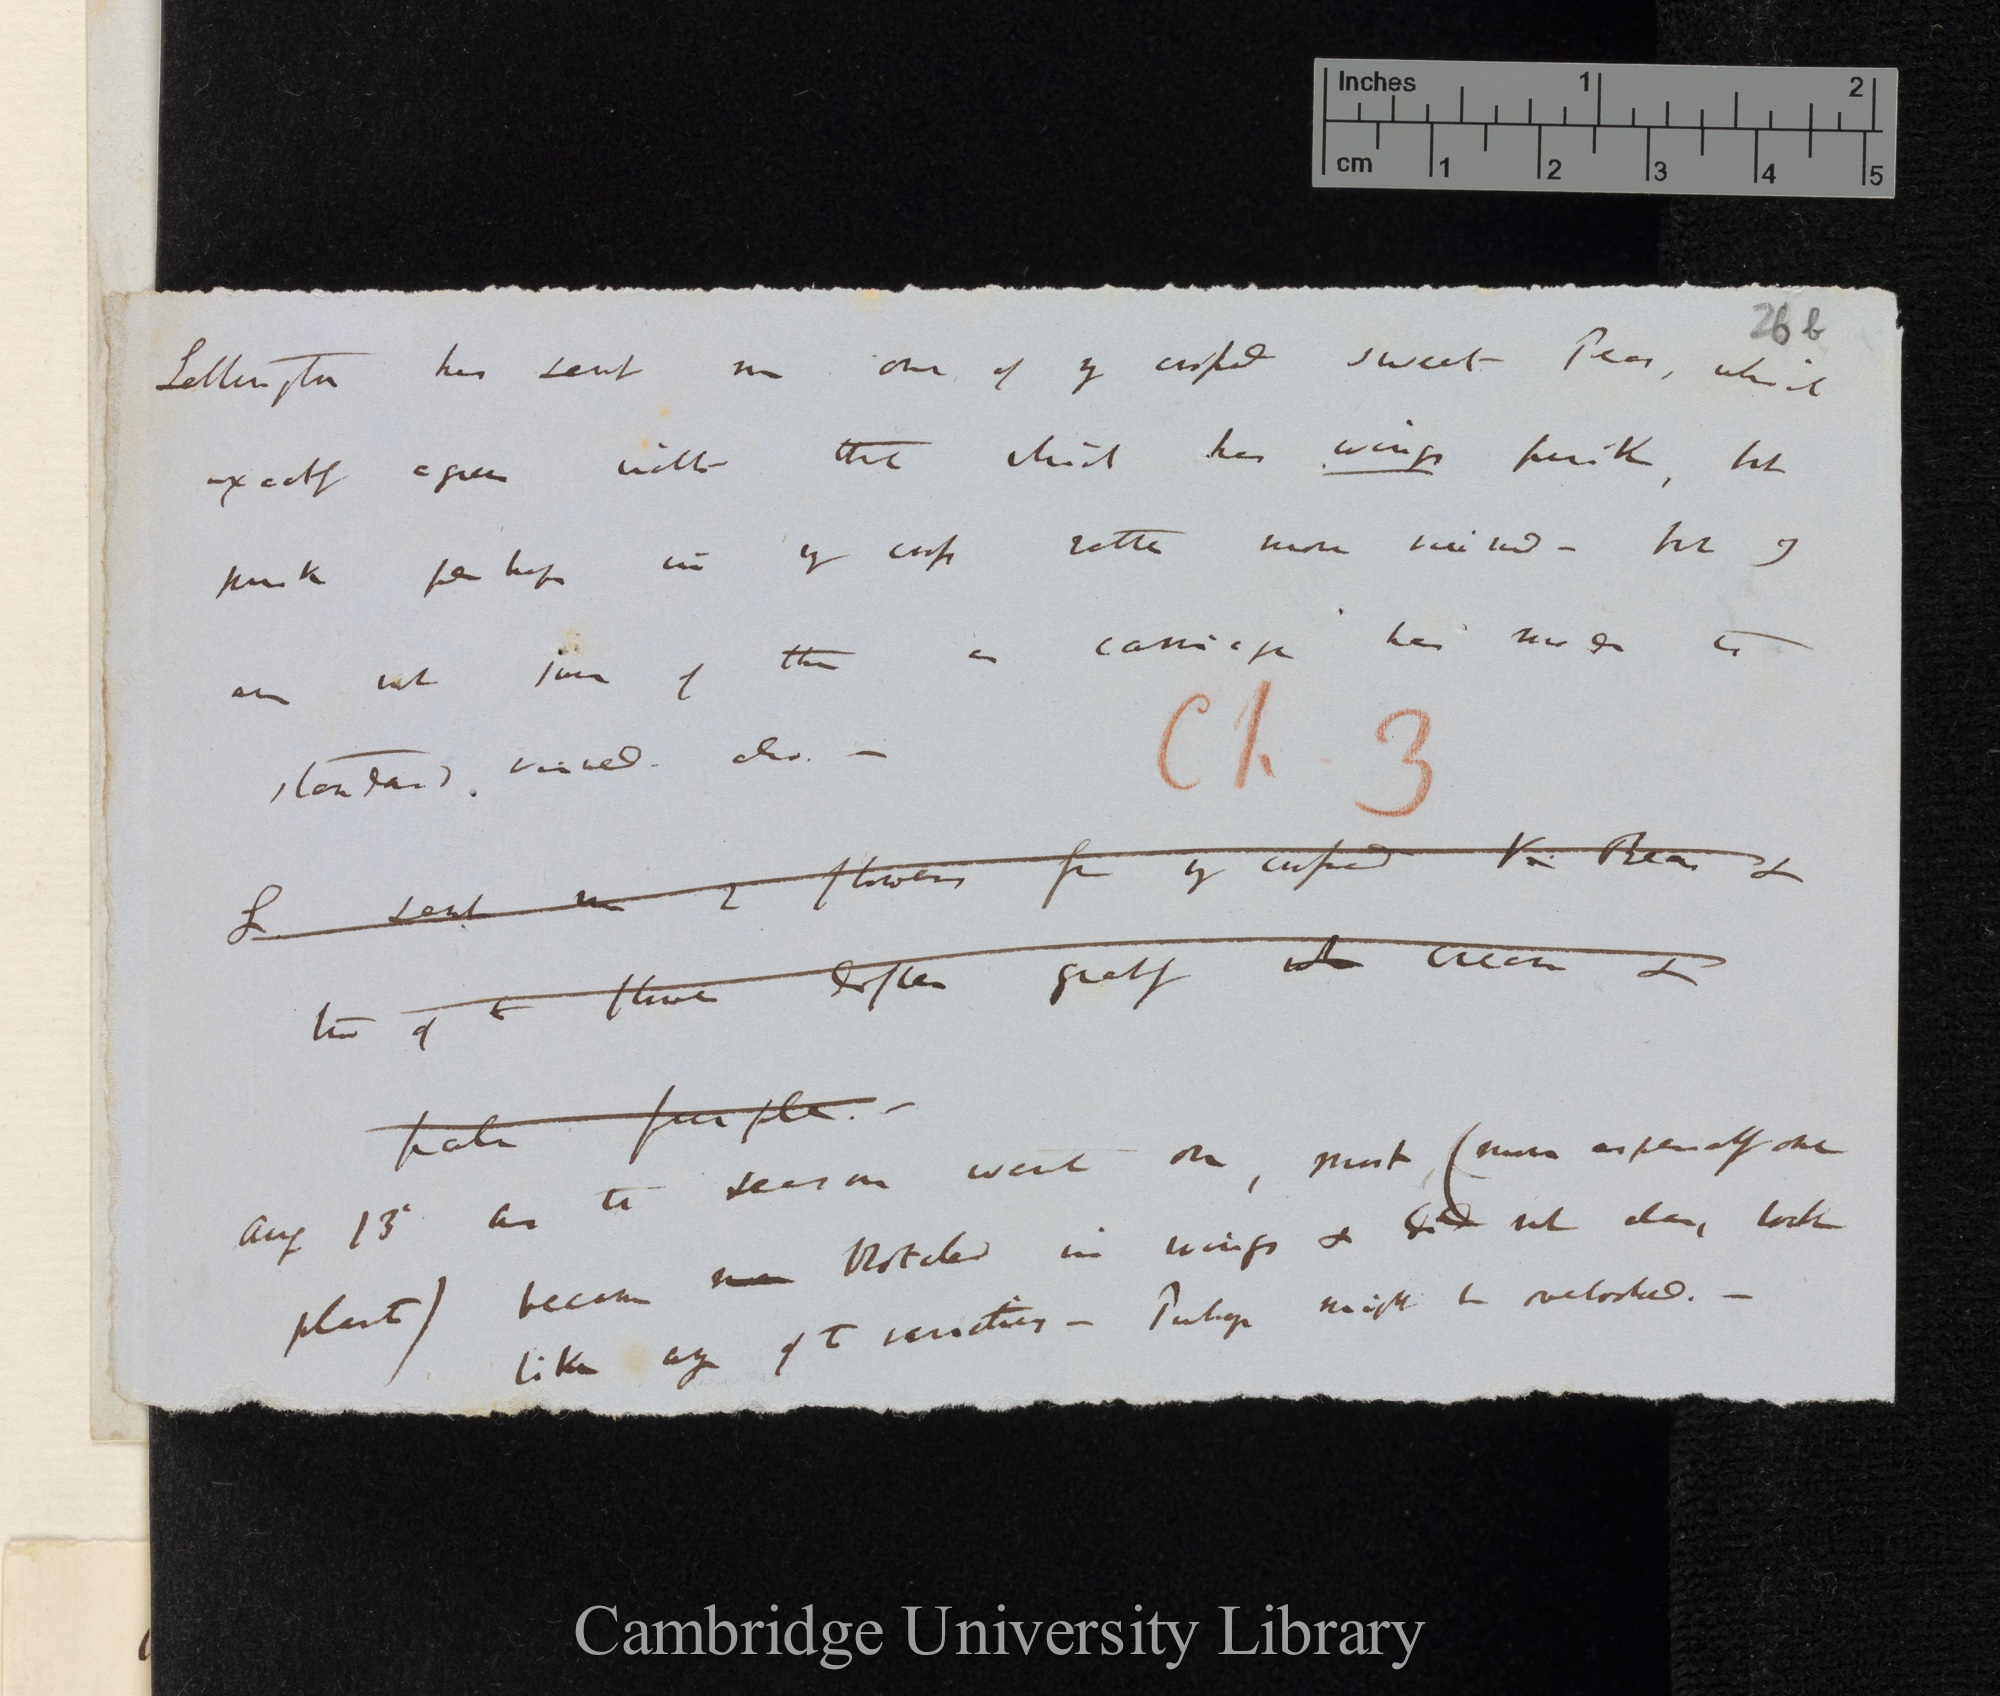 Inches 1 2
cm 1 2 3 4 5
26 b
Lettington has sent me one of my crossed sweet Peas, which
exactly agrees with that which has wings pink, but
pink perhaps in my cross rather more veined — but I
am not sure of this as carriage has made the
standard, veined also. —
Ch. 3
L. sent me 2 flowers from my crossed Peas &
two of the flowers differ greatly cream &
pale purple. —
Aug 13 As the season went on, most (more especially one
plant) became blotched in wings & did not alas, look
like any of the varieties — Perhaps might be overlooked. —
Cambridge University Library